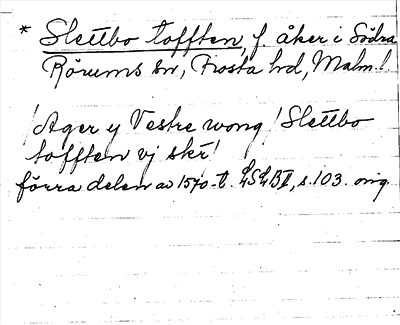 * Slettbo tofften, f. åker i Södra
Rörums sn, Frosta hd, Malm. l.
/Ager y Vestre wong/ Slettbo
tofften vj skr/
förra delen av 1570-t. LSLB II, s. 103. orig.